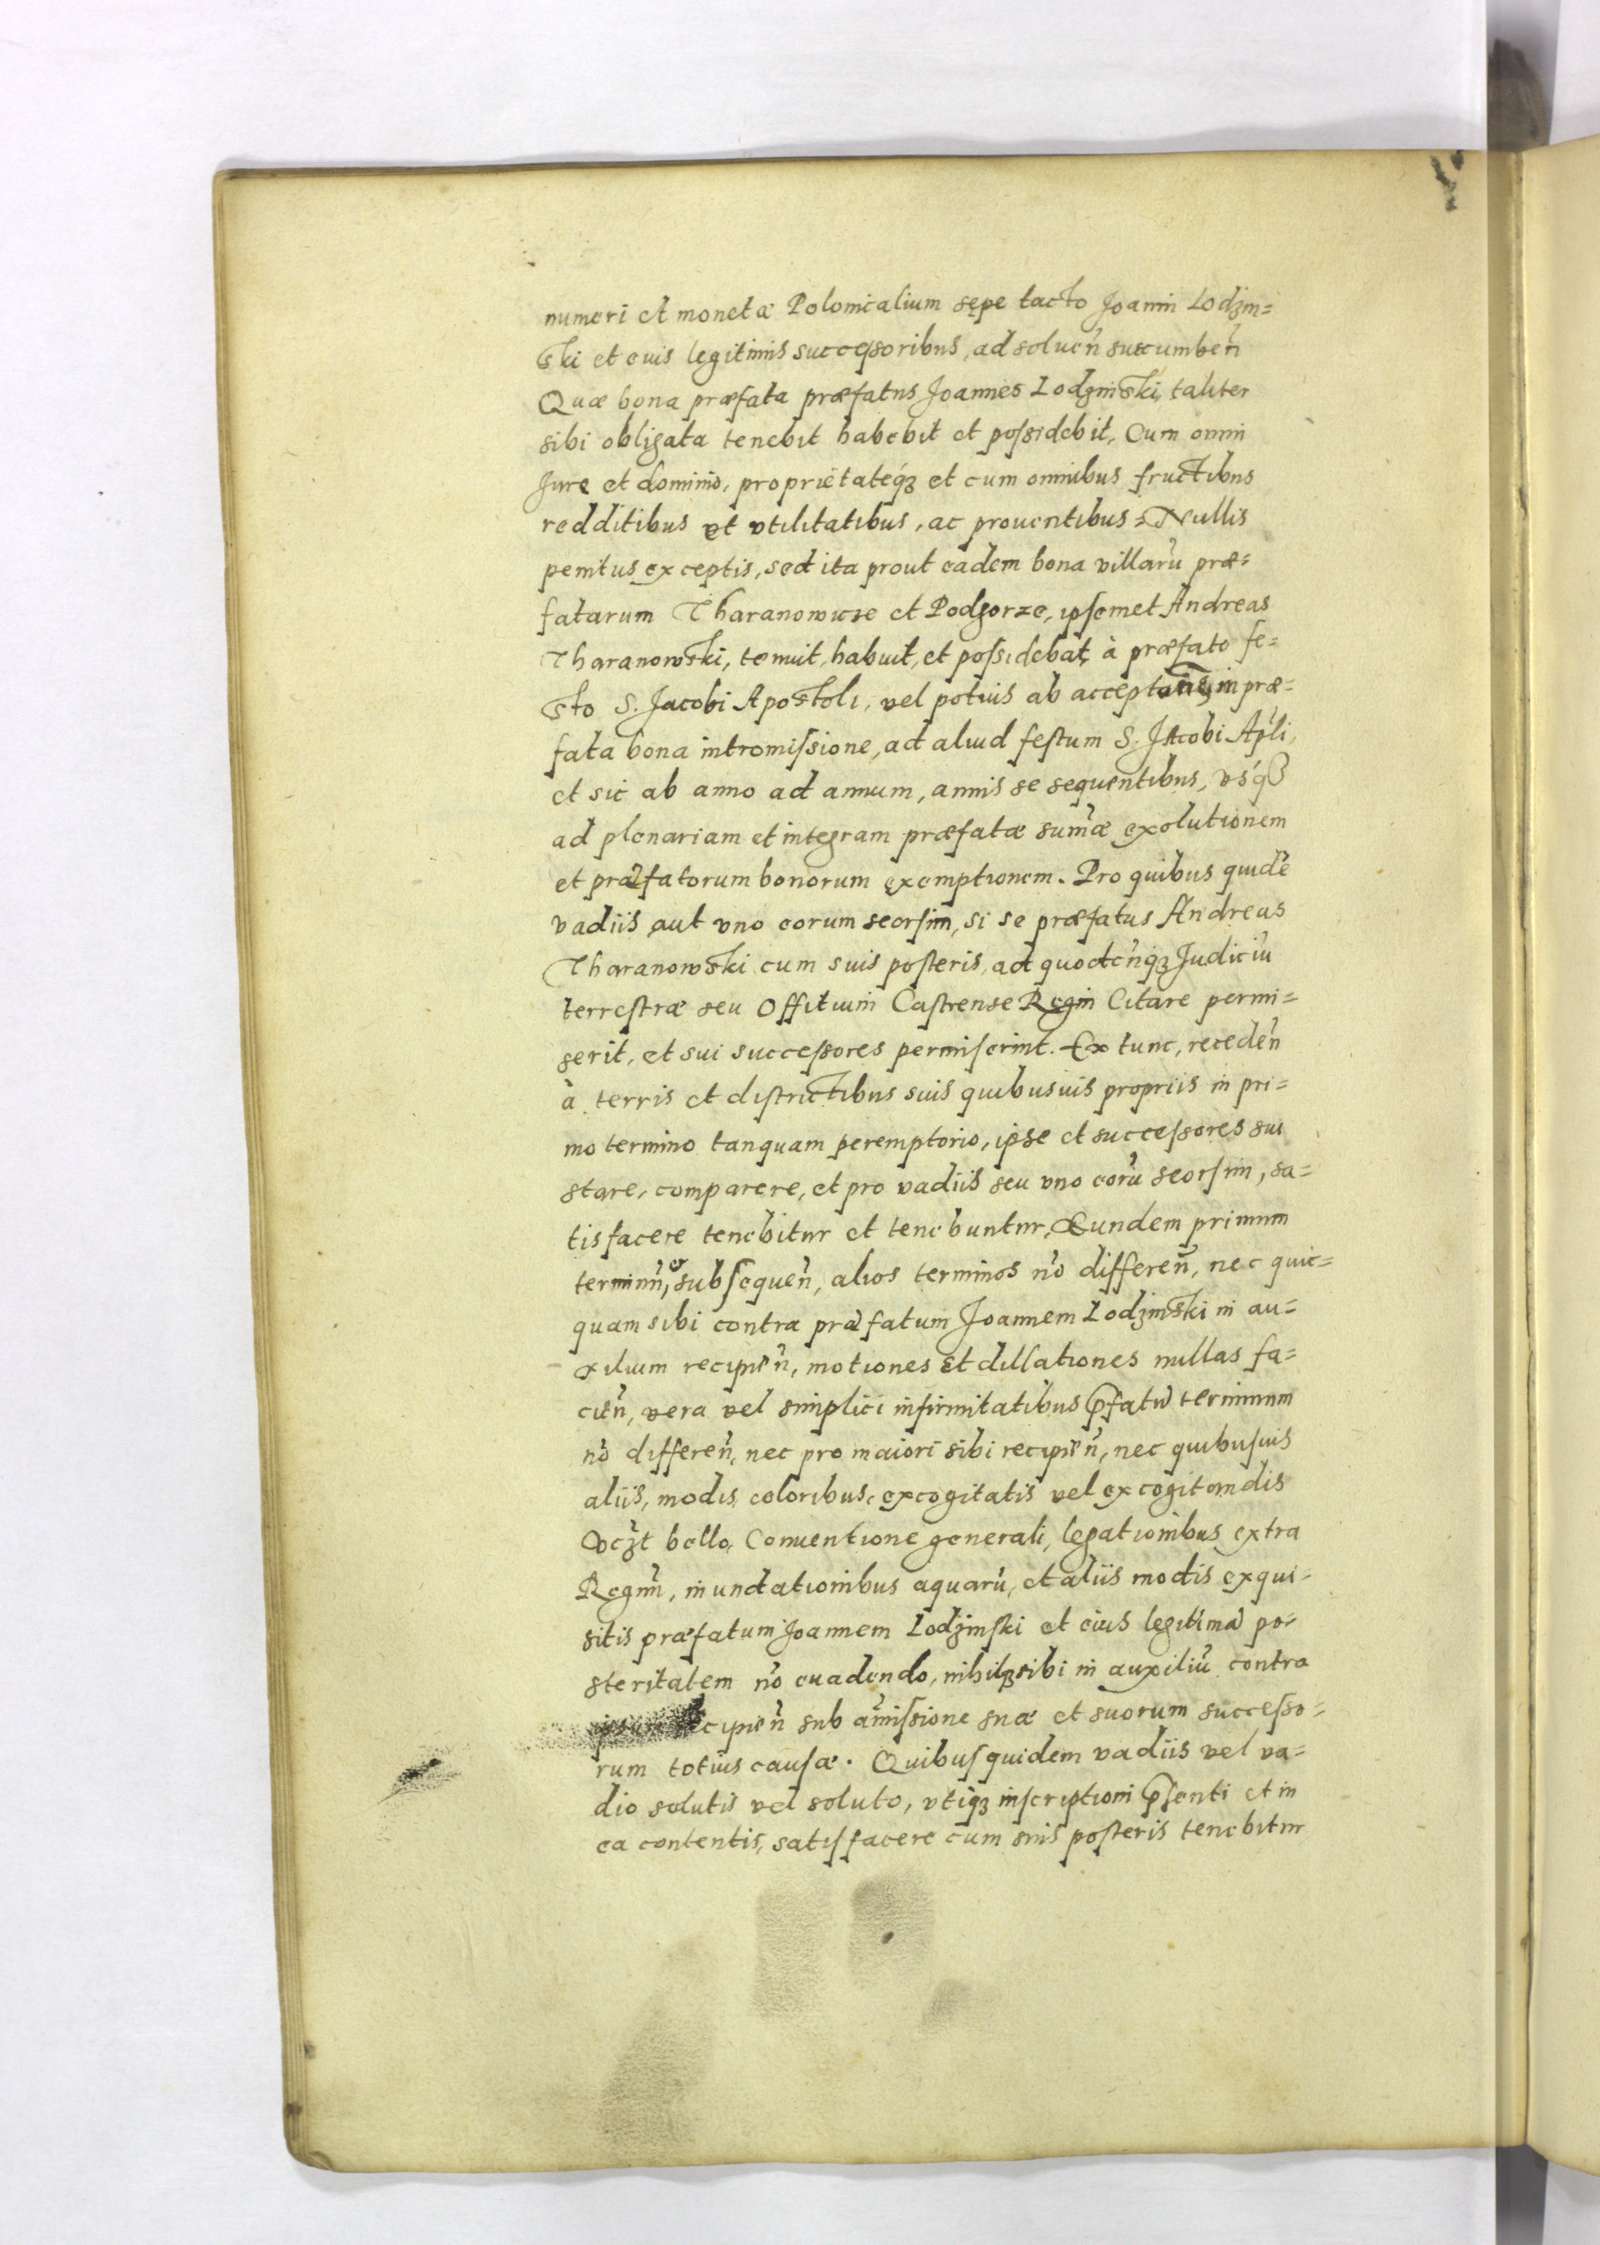 numeri et monetæ Polonicalium sępe tacto Joanni Lodzin=
ski et euis legitimis successoribus, ad soluen̄ succumben̄
Quæ bona præfata præfatus Joannes Lodzinski, taliter
sibi obligata tenebit habebit et possidebit, Cum omni
Jure et dominio, proprietateq́ꝫ et cum omnibus fructibus
redditibus et vtilitatibus, ac prouentibus = Nullis
penitus exceptis, sed ita prout eadem bona villarū præ=
fatarum Tharanowicze et Podgorze, ipsemet Andreas
Tharanowski, tenuit, habuit, et possidebat, à præfato fe=
sto S. Jacobi Apostoli, vel potius ab in præ=
fata bona intromissione, ad aliud festum S. Jacobi Ap̄li,
et sic ab anno ad annum, annis se sequentibus, vsq́ꝫ
ad plenariam et integram præfatæ sum̄æ exolutionem
et præfatorum bonorum exemptionem. Pro quibus quidē
vadiis aut vno eorum seorsim, si se præfatus Andreas
Tharanowski cum suis posteris, ad quodcūqꝫ Judiciū
terrestræ seu Offitium Castrense Regni Citare permi=
serit, et sui successores permiserint. Ex tunc, receden̄
à terris et districtibus suis quibusuis propriis in pri=
mo termino tanquam peremptorio, ipse et successores sui
stare, comparere, et pro vadiis seu vno eorū seorsim, sa=
tisfacere tenebitur et tenebuntur, Eundem primum
terminū, et subsequen̄, alios terminos nō differen̄, nec quic=
quam sibi contra præfatum Joannem Lodzinski in au=
xilium recipien̄, motiones et dillationes nullas fa=
cien̄, vera vel simplici infirmitatibus p̄fatū terminum
nō differen̄, nec pro maiori sibi recipien̄, nec quibusuis
aliis, modis coloribus, excogitatis vel excogitandis
Vcꝫt bello, Conuentione generali, legationibus extra
Regnū, inundationibus aquarū, et aliis modis exqui-
sitis præfatum Joannem Lodzinski et eius legitimā po-
steritatem nō euadendo, nihilqꝫ sibi in auxiliū contra
ipsum recipien̄ sub amissione suæ et suorum successo=
rum totius causæ. Quibus quidem vadiis vel va=
dio solutis vel soluto, vtiqꝫ inscriptioni p̄senti et in
ea contentis, satisfacere cum suis posteris tenebitur